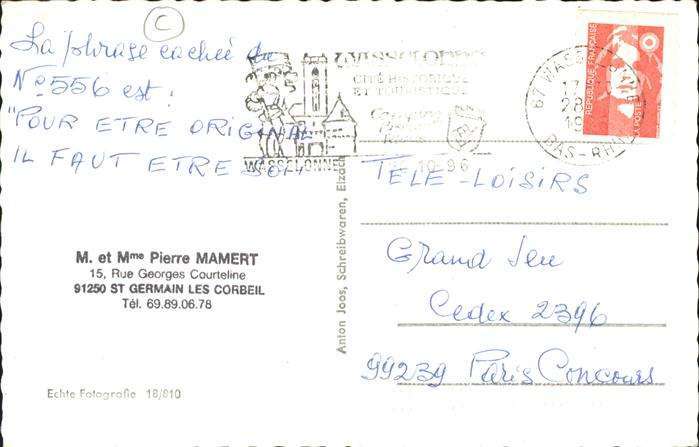 C
La phrase cachée du
N° 556 est :
"POUR ETRE ORIGINAL
IL FAUT ETRE SOI"
CITÉ HISTORIQUE
ET TOURISTIQUE
WASSELONNE
10 - 96
67 WASSELONNE
17 H
28
19
BAS-RHIN
REPUBLIQUE FRANÇAISE
LA POSTE
M. et Mme Pierre MAMERT
15, Rue Georges Courteline
91250 ST GERMAIN LES CORBEIL
Tél. 69.89.06.78
Echte Fotografie 18/810
Anton Joos, Schreibwaren, Elzach
TÉLÉ-LOISIRS
Grand Jeu
Cedex 2396
99239 Paris Concours